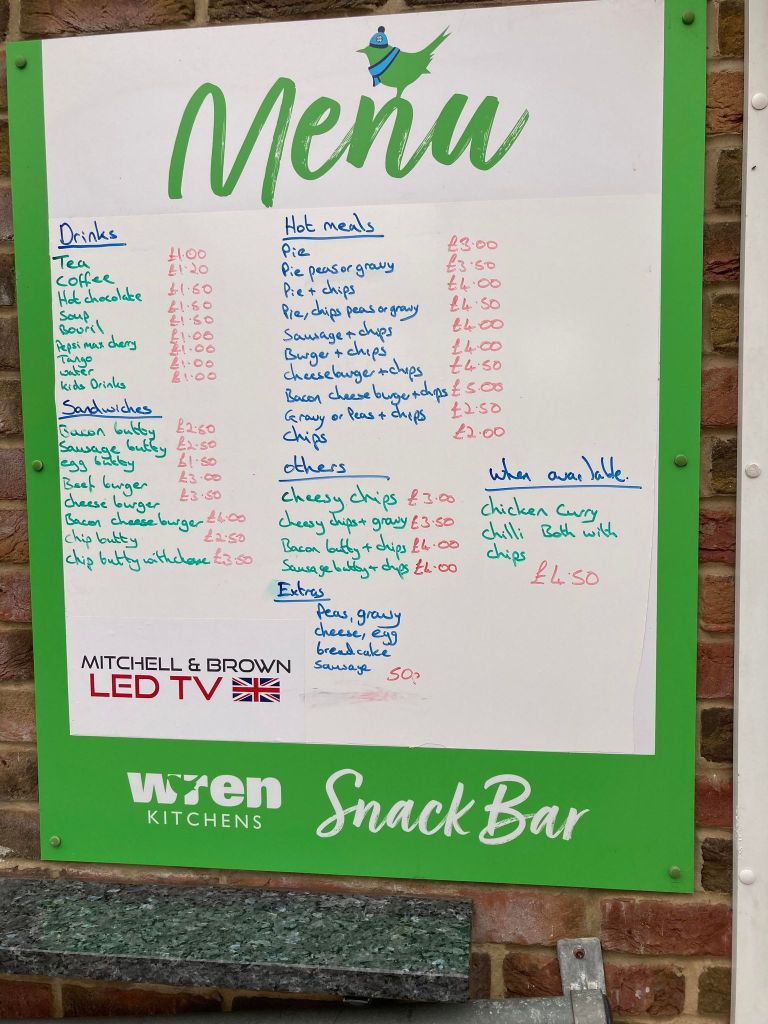 Menu
Drinks
Tea £1.00
Coffee £1.20
Hot chocolate £1.50
Soup £1.50
Bouril £1.50
Pepsi max cherry £1.00
Tango £1.00
water £1.00
Kids Drinks £1.00
Sandwiches
Bacon butty £2.50
Sausage butty £2.50
egg butty £1.50
Beef burger £3.00
cheese burger £3.50
Bacon cheeseburger £4.00
chip butty £2.50
chip butty with cheese £3.50
Hot meals
Pie £3.00
Pie peas or gravy £3.50
Pie + chips £4.00
Pie, chips peas or gravy £4.50
Sausage + chips £4.00
Burger + chips £4.00
cheeseburger + chips £4.50
Bacon cheese burger + chips £5.00
Gravy or Peas + chips £2.50
Chips £2.00
others
Cheesy chips £3.00
cheesy chips + gravy £3.50
Bacon butty + chips £4.00
Sausage butty + chips £4.00
When available.
chicken curry
chilli Both with
chips
£4.50
Extras
Peas, gravy
cheese, egg
breadcake
sausage 50p
MITCHELL & BROWN
LED TV
wren
KITCHENS
Snack Bar